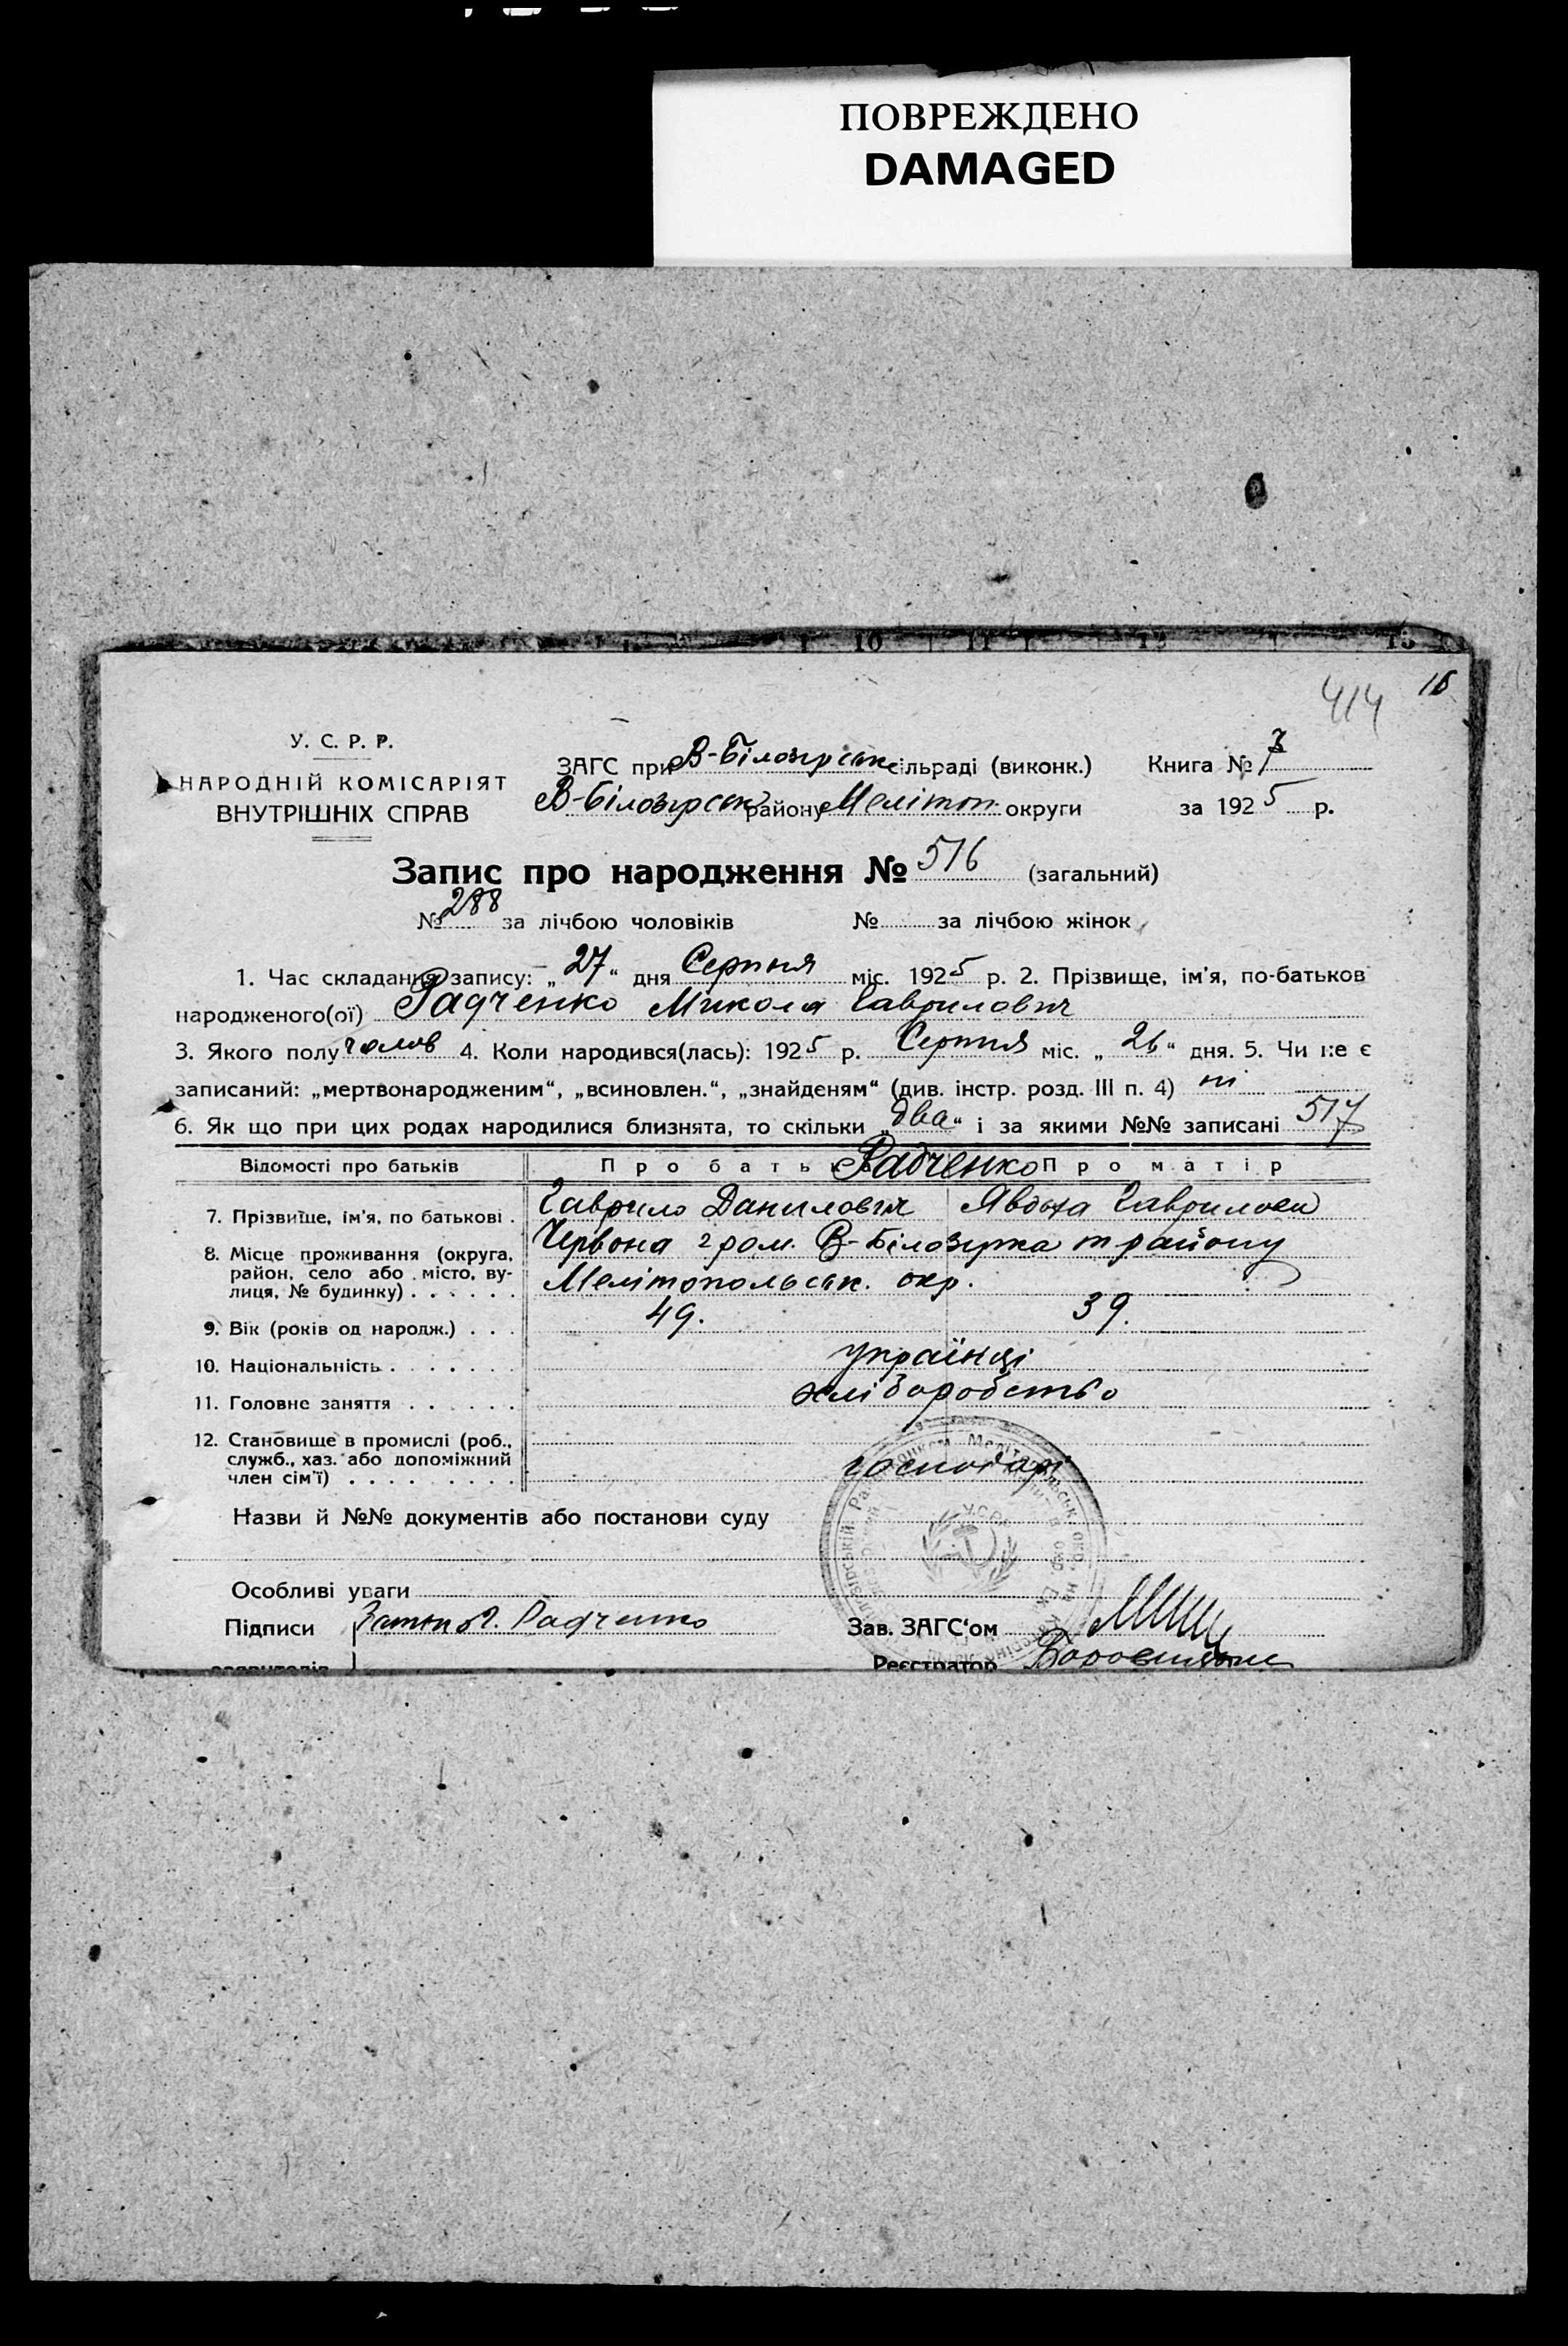 ПОВРЕЖДЕНО
DAMAGED
10 11 12 13
414 16
У. С. Р. Р.
НАРОДНІЙ КОМІСАРІЯТ
ВНУТРІШНІХ СПРАВ
ЗАГС при В-Білозірськ сільраді (виконк.) Книга № 7
В-Білозірськ району Мелітоп. округи за 1925 р.
Запис про народження № 516 (загальний)
№ 288 за лічбою чоловіків № за лічбою жінок
1. Час складання запису: „27“ дня Серпня міс. 1925 р. 2. Прізвище, ім'я, по-батьков
народженого(ої) Радченко Микола Гаврилович
3. Якого полу чолов 4. Коли народився(лась): 1925 р. Серпня міс. „26“ дня. 5. Чи не є
записаний: „мертвонародженим“, „всиновлен.“, „знайденям“ (див. інстр. розд. III п. 4) ні
6. Як що при цих родах народилися близнята, то скільки „два“ і за якими №№ записані 517
Відомості про батьків Про батька Радченко Про матір
7. Прізвище, ім'я, по батькові . Гаврило Данилович Явдоха Гаврилова
8. Місце проживання (округа, район, село або місто, вулиця, № будинку) . . . . . . Червона гром. В-Білозірка т району
Мелітопольськ. окр.
9. Вік (років од народж.) . . . 49. 39.
10. Національність . . . . . . . українці
11. Головне заняття . . . . . . хліборобство
12. Становище в промислі (роб., служб., хаз. або допоміжний член сім'ї) . . . . . . . . . господарі
Назви й №№ документів або постанови суду
УСРР
Особливі уваги
Підписи Радченко Зав. ЗАГС'ом
заявителів Реєстратор